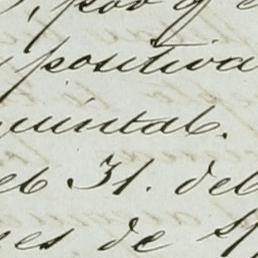 , por
positiva
quintal.
el 31. del
es de